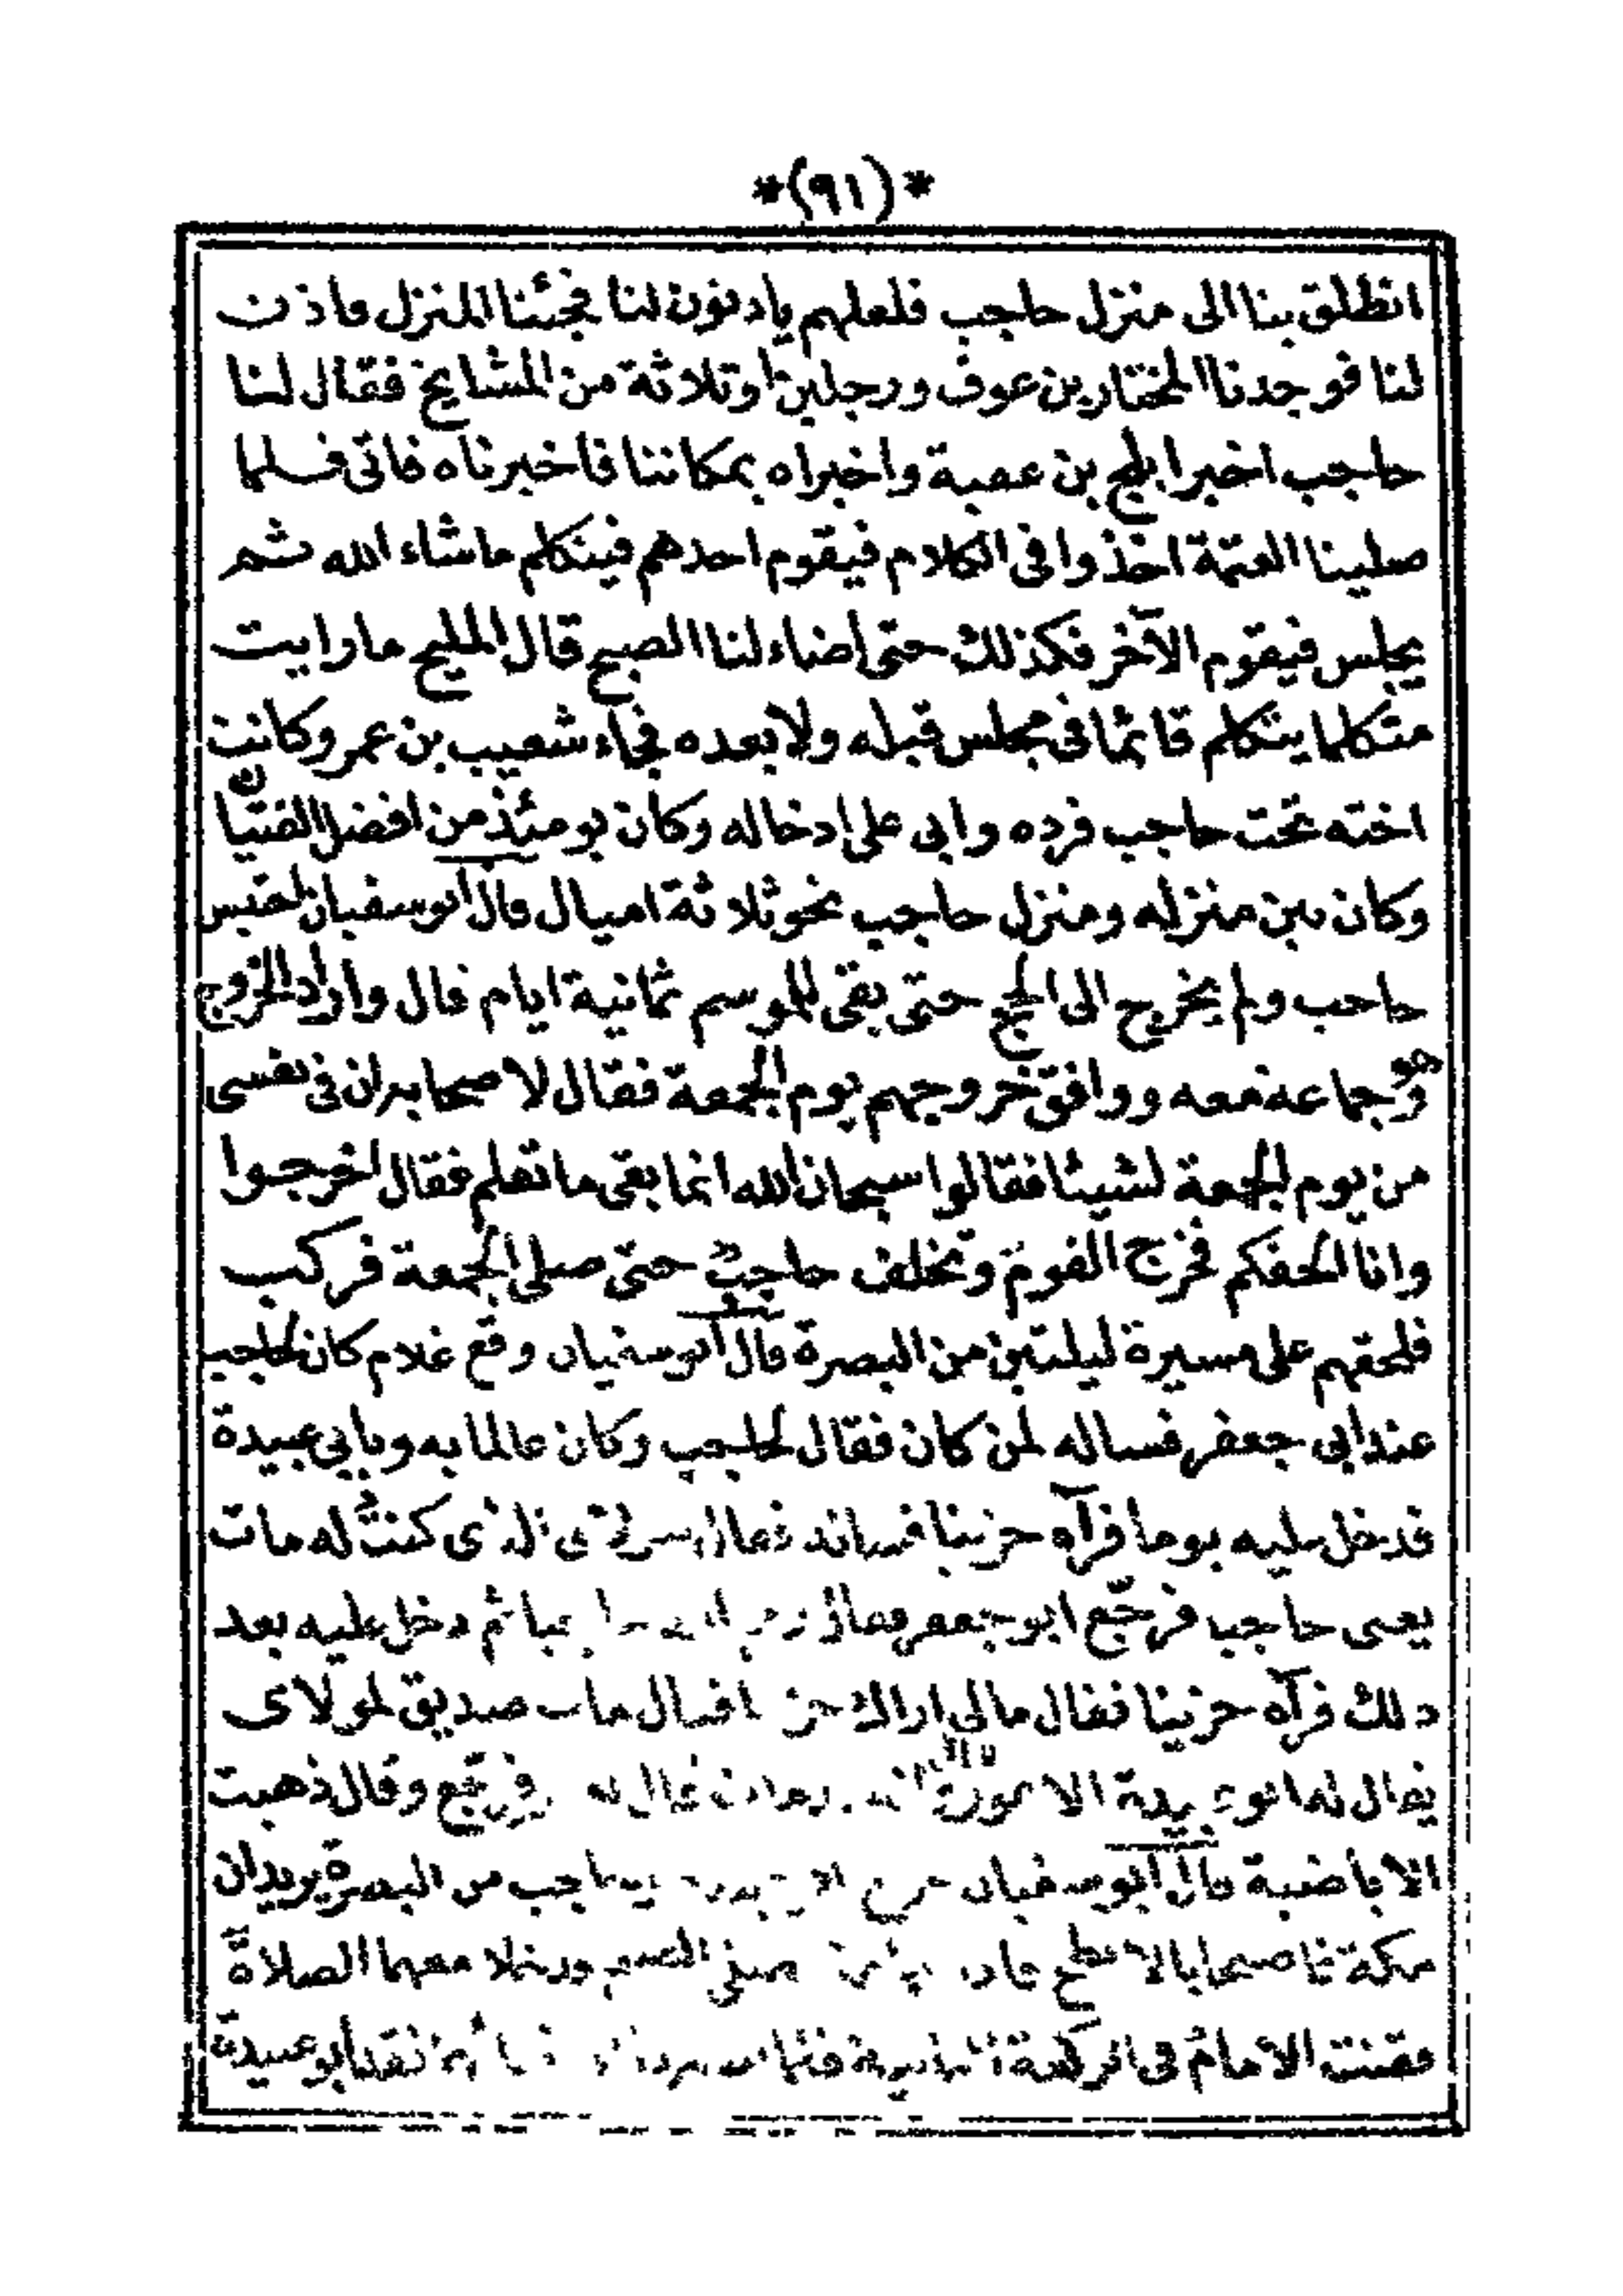 *(٩١)*
انطلق بنا الى منزل حاجب فلعلهم يادنون لنا فجئنا المنزل فاذن
لنا فوجدنا المختار بن عوف ورجلين او ثلاثة من المشايخ فقال لنا
حاجب اخبرا بلج بن عقبة واخبراه بمكاننا فاخبرناه فاتى فلما
صلينا العتمة اخذوا في الكلام فيقوم احدهم فيتكلم ماشاء الله ثم
يجلس فيقوم الآخر فكذلك حتى اضاء لنا الصبح قال المليح ما رايت
متكلما يتكلم قائما في مجلس قبله ولا بعده فجاء شعيب بن عمر وكانت
اخته تحت حاجب فرده وابى على ادخاله وكان يومئذ من افضل الفتيان
وكان بين منزله ومنزل حاجب نحو ثلاثة اميال قال ابو سفيان احتبس
حاجب ولم يخرج الى الحج حتى بقى للموسم ثمانية ايام قال واراد الخروج
هو وجماعة معه ووافق خروجهم يوم الجمعة فقال لاصحابه ان في نفسى
من يوم الجمعة لشيئا فقالوا سبحان الله انما بقى ما تعلم فقال اخرجوا
وانا الحقكم فخرج القوم وتخلف حاجب حتى صلى الجمعة فركب
فلحقهم على مسيرة ليلتين من البصرة قال ابو سفيان وقع غلام كان لحاجب
عند ابى جعفر فساله لمن كان فقال لحاجب وكان عالما به وبابى عبيدة
فدخل عليه يوما فرآه حزينا فساله فقال الذى كنت له مات
يعنى حاجبا فرجّع ابو جعفر وقال ثم دخل عليه بعد
ذلك فرآه حزينا فقال مالى اراك حزينا فقال مات صديق لمولاى
يقال له ابو عبيدة الاعور قال له فرجّع وقال ذهبت
الاباضية قال ابو سفيان خرج وحاجب من البصرة يريدان
مكة فاصحابا بالابطح صلى الصبح ودخلا معهما الصلاة
فقنت الامام في الركعة الثانية ابو عبيدة